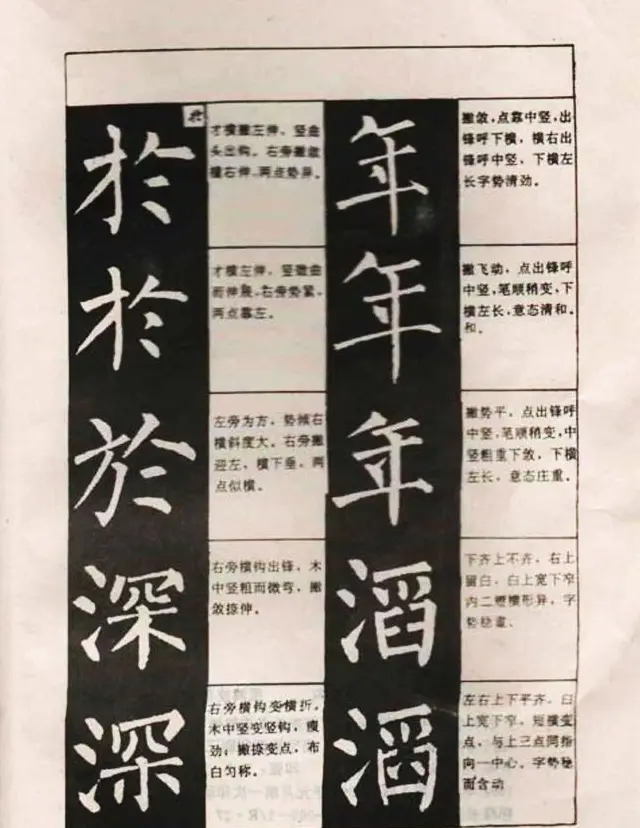 於
才横撇左伸，竖曲
头出钩。右旁撇敛
横右伸，两点势异。
於
才横左伸，竖微曲
而伸展，右旁势紧，
两点靠左。
於
左旁为方，势倾右
横斜度大。右旁撇
迎左，横下垂，两
点似横。
深
右旁横钩出锋，木
中竖粗而微弯，撇
敛捺伸。
深
右旁横钩变横折，
木中竖变竖钩，瘦
劲；撇捺变点，布
白匀称。
年
撇敛，点靠中竖，出
锋呼下横，横右出
锋呼中竖，下横左
长字势清劲。
年
撇飞动，点出锋呼
中竖，笔顺稍变，下
横左长，意态清和。
和。
年
撇势平，点出锋呼
中竖，笔顺稍变，中
竖粗重下敛，下横
左长，意态庄重。
滔
下齐上不齐，右上
留白，臼上宽下窄
内二短横形异，字
势稳重。
滔
左右上下平齐，臼
上宽下窄，短横变
点，与上三点同指
向一中心，字势稳
而含动